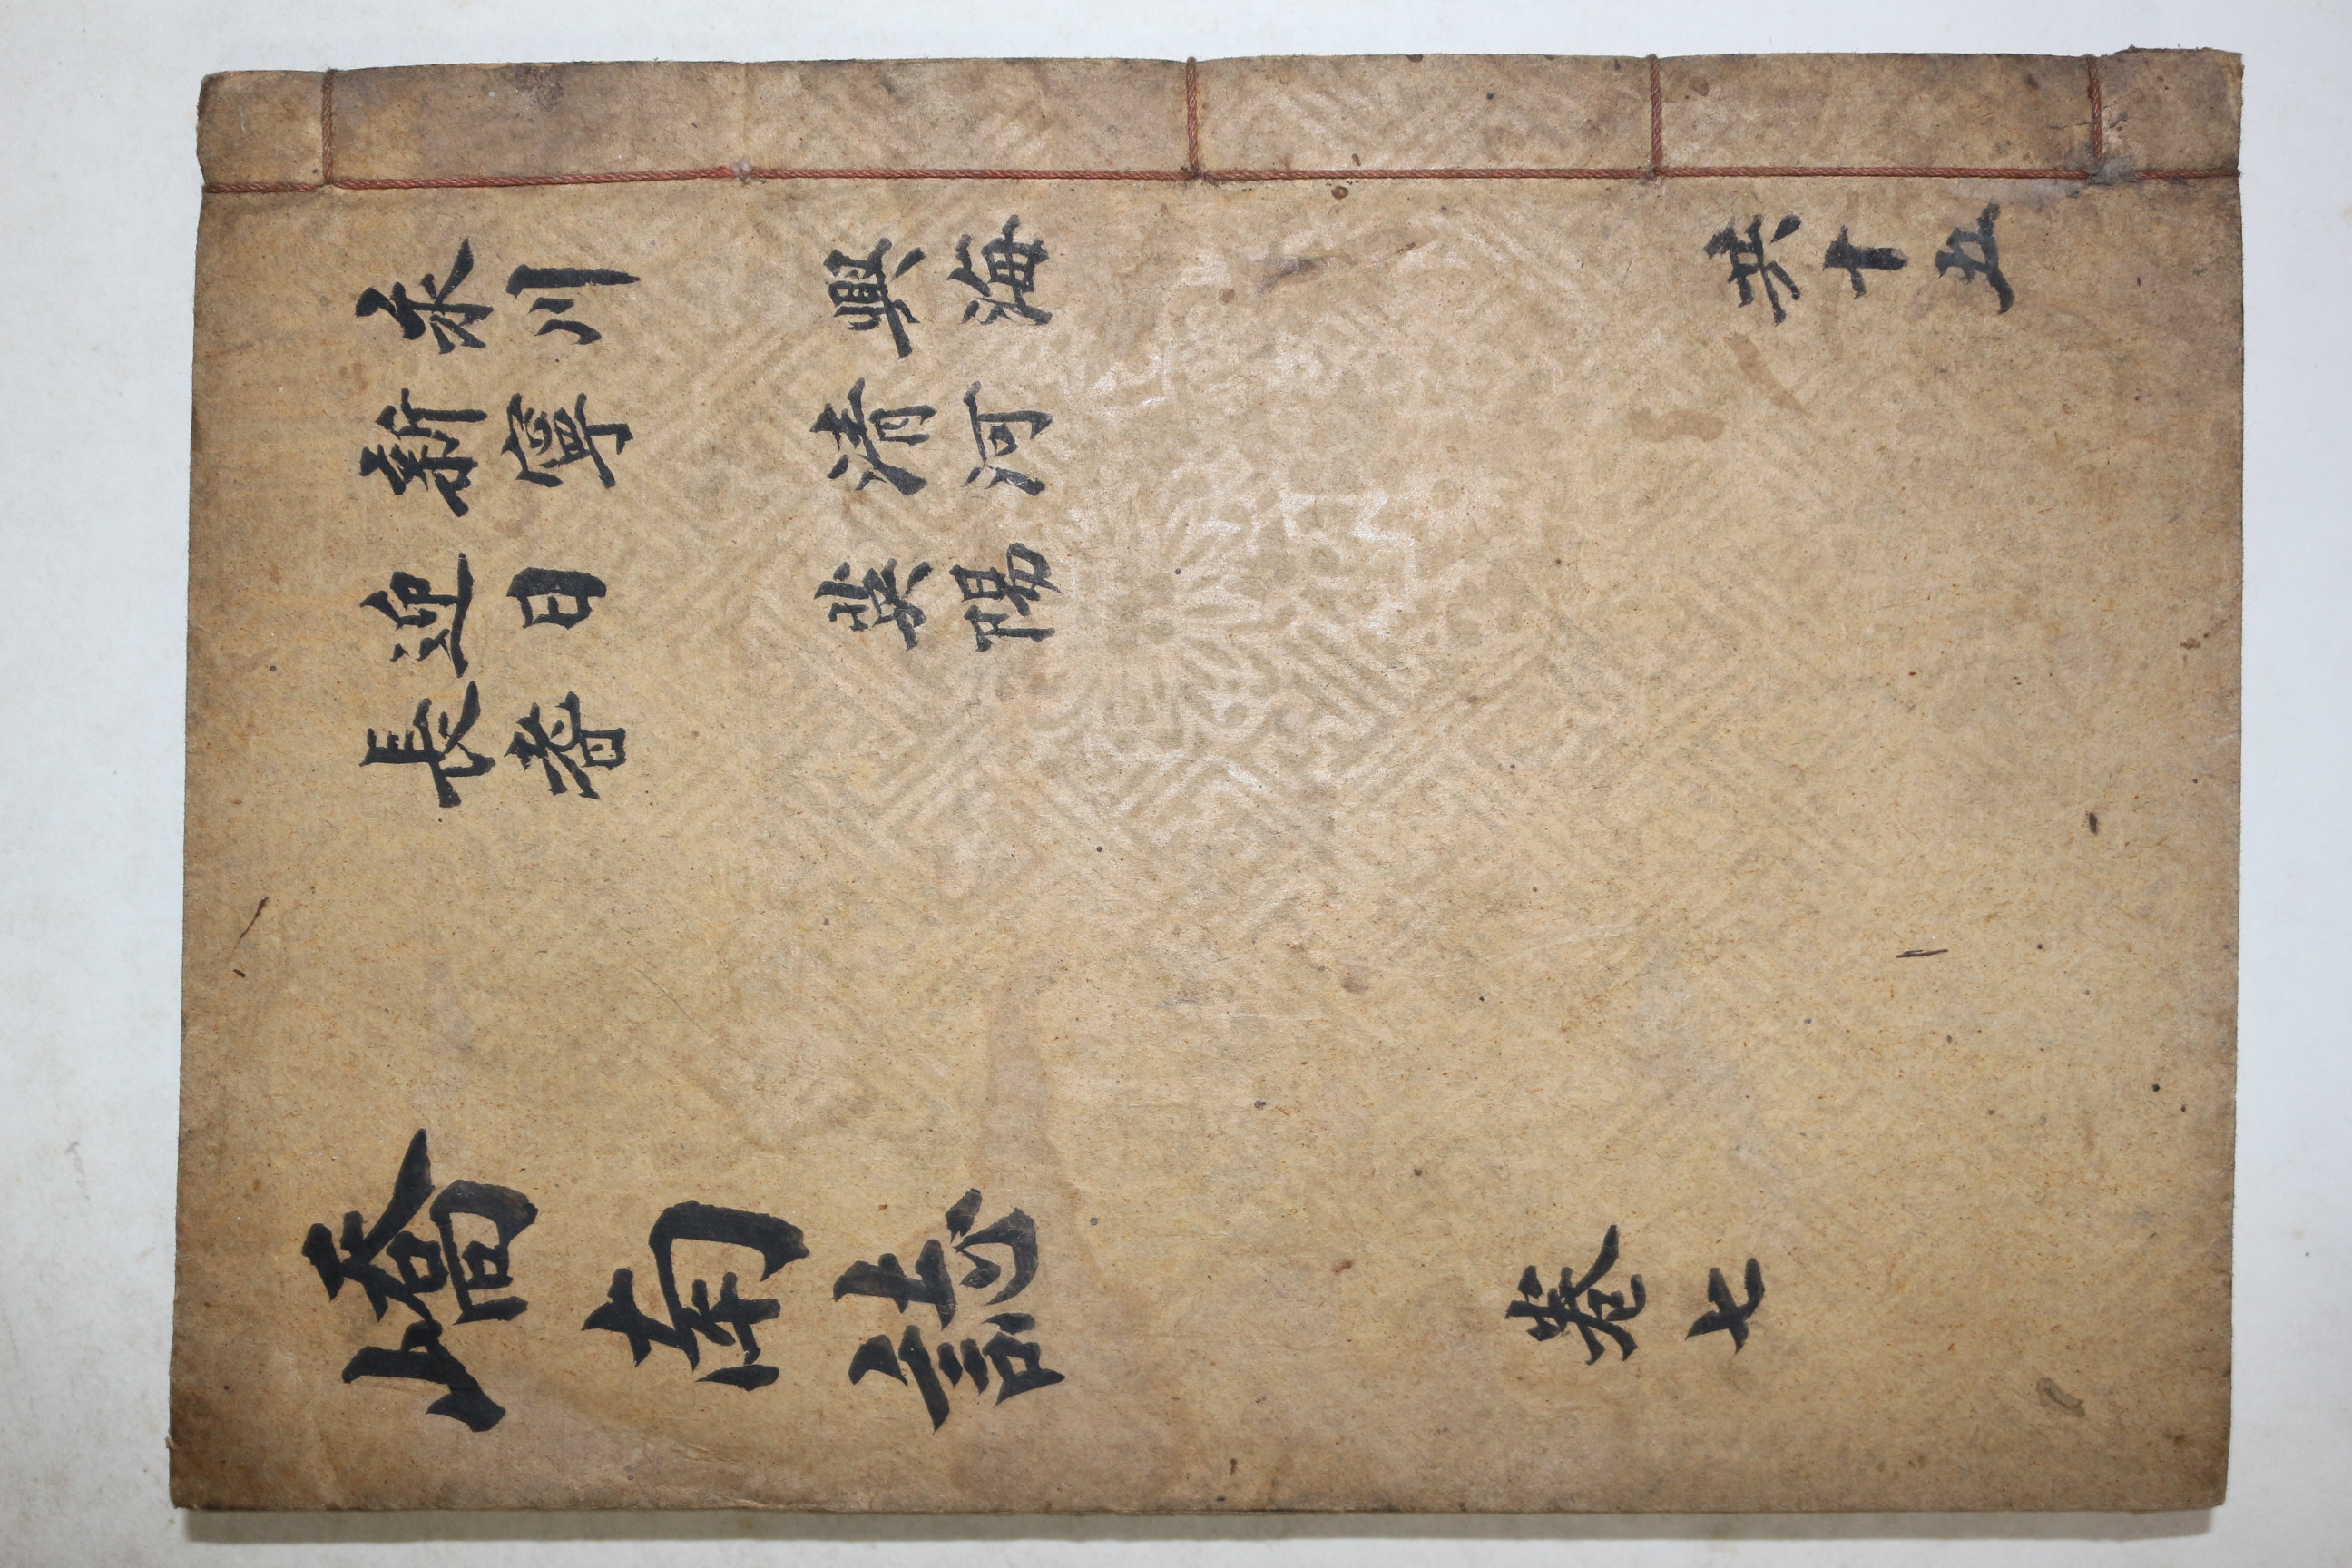 永川
興海
新寧
清河
迎日
英陽
長鬐
共十五
嶠南誌
卷七